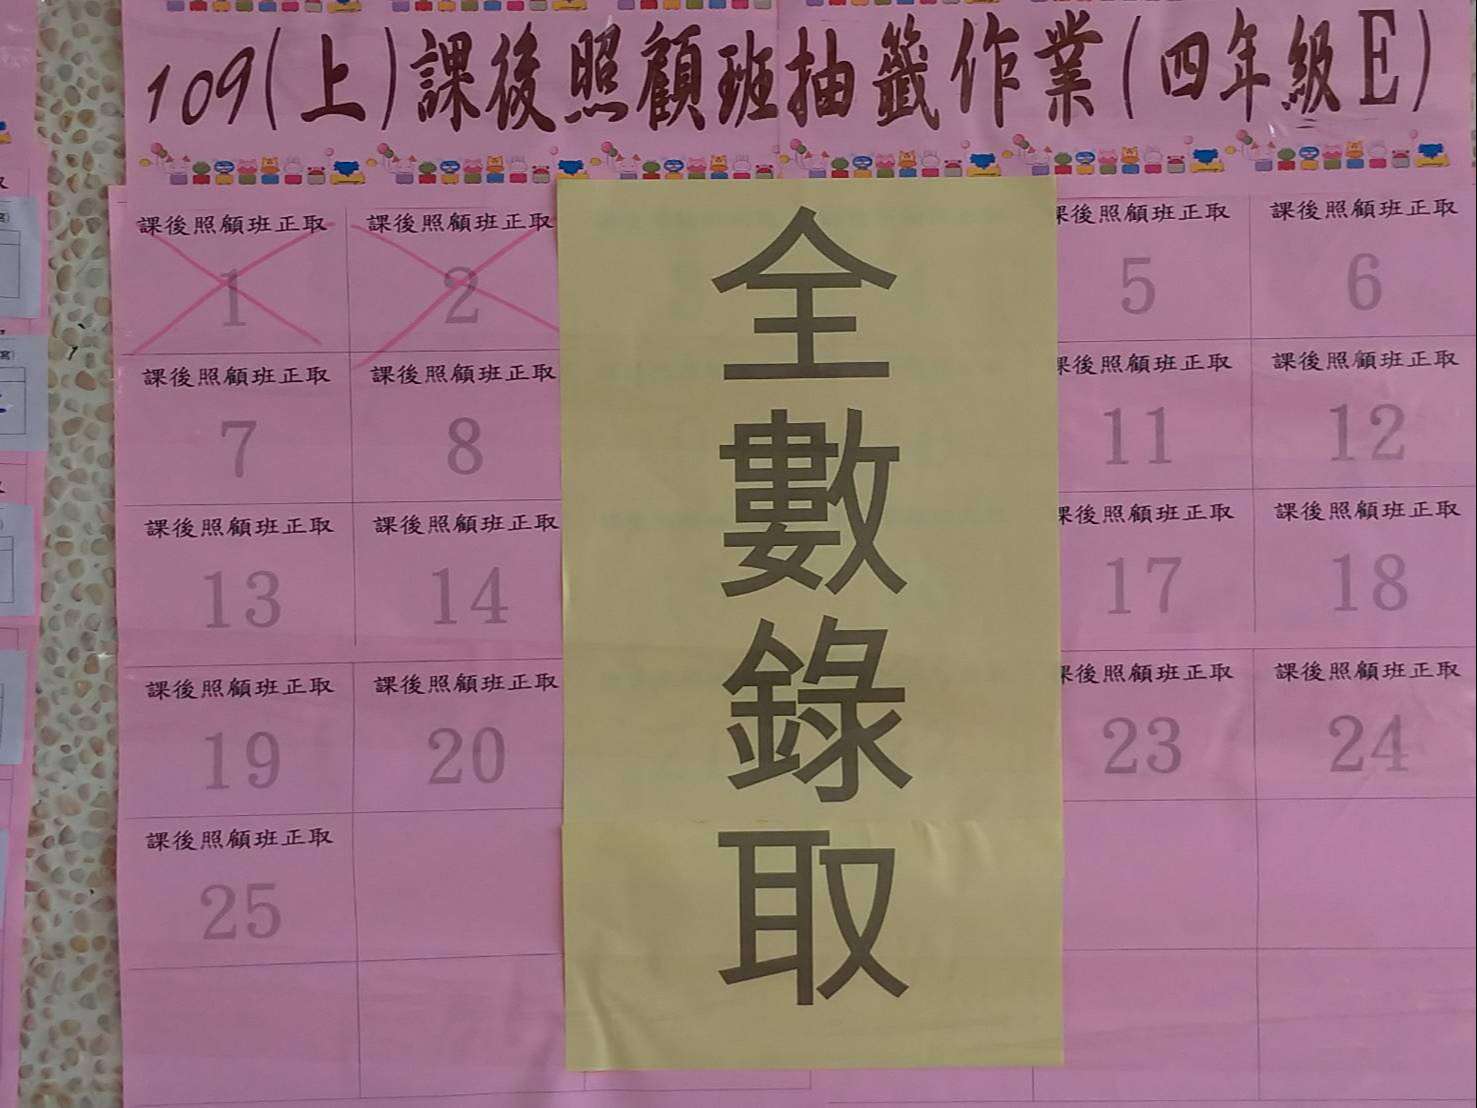 109(上)課後照顧班抽籤作業(四年級E)
課後照顧班正取 課後照顧班正取 後照顧班正取 課後照顧班正取
1 2 5 6
課後照顧班正取 課後照顧班正取 後照顧班正取 課後照顧班正取
7 8 11 12
課後照顧班正取 課後照顧班正取 後照顧班正取 課後照顧班正取
13 14 17 18
課後照顧班正取 課後照顧班正取 後照顧班正取 課後照顧班正取
19 20 23 24
課後照顧班正取
25
全數錄取